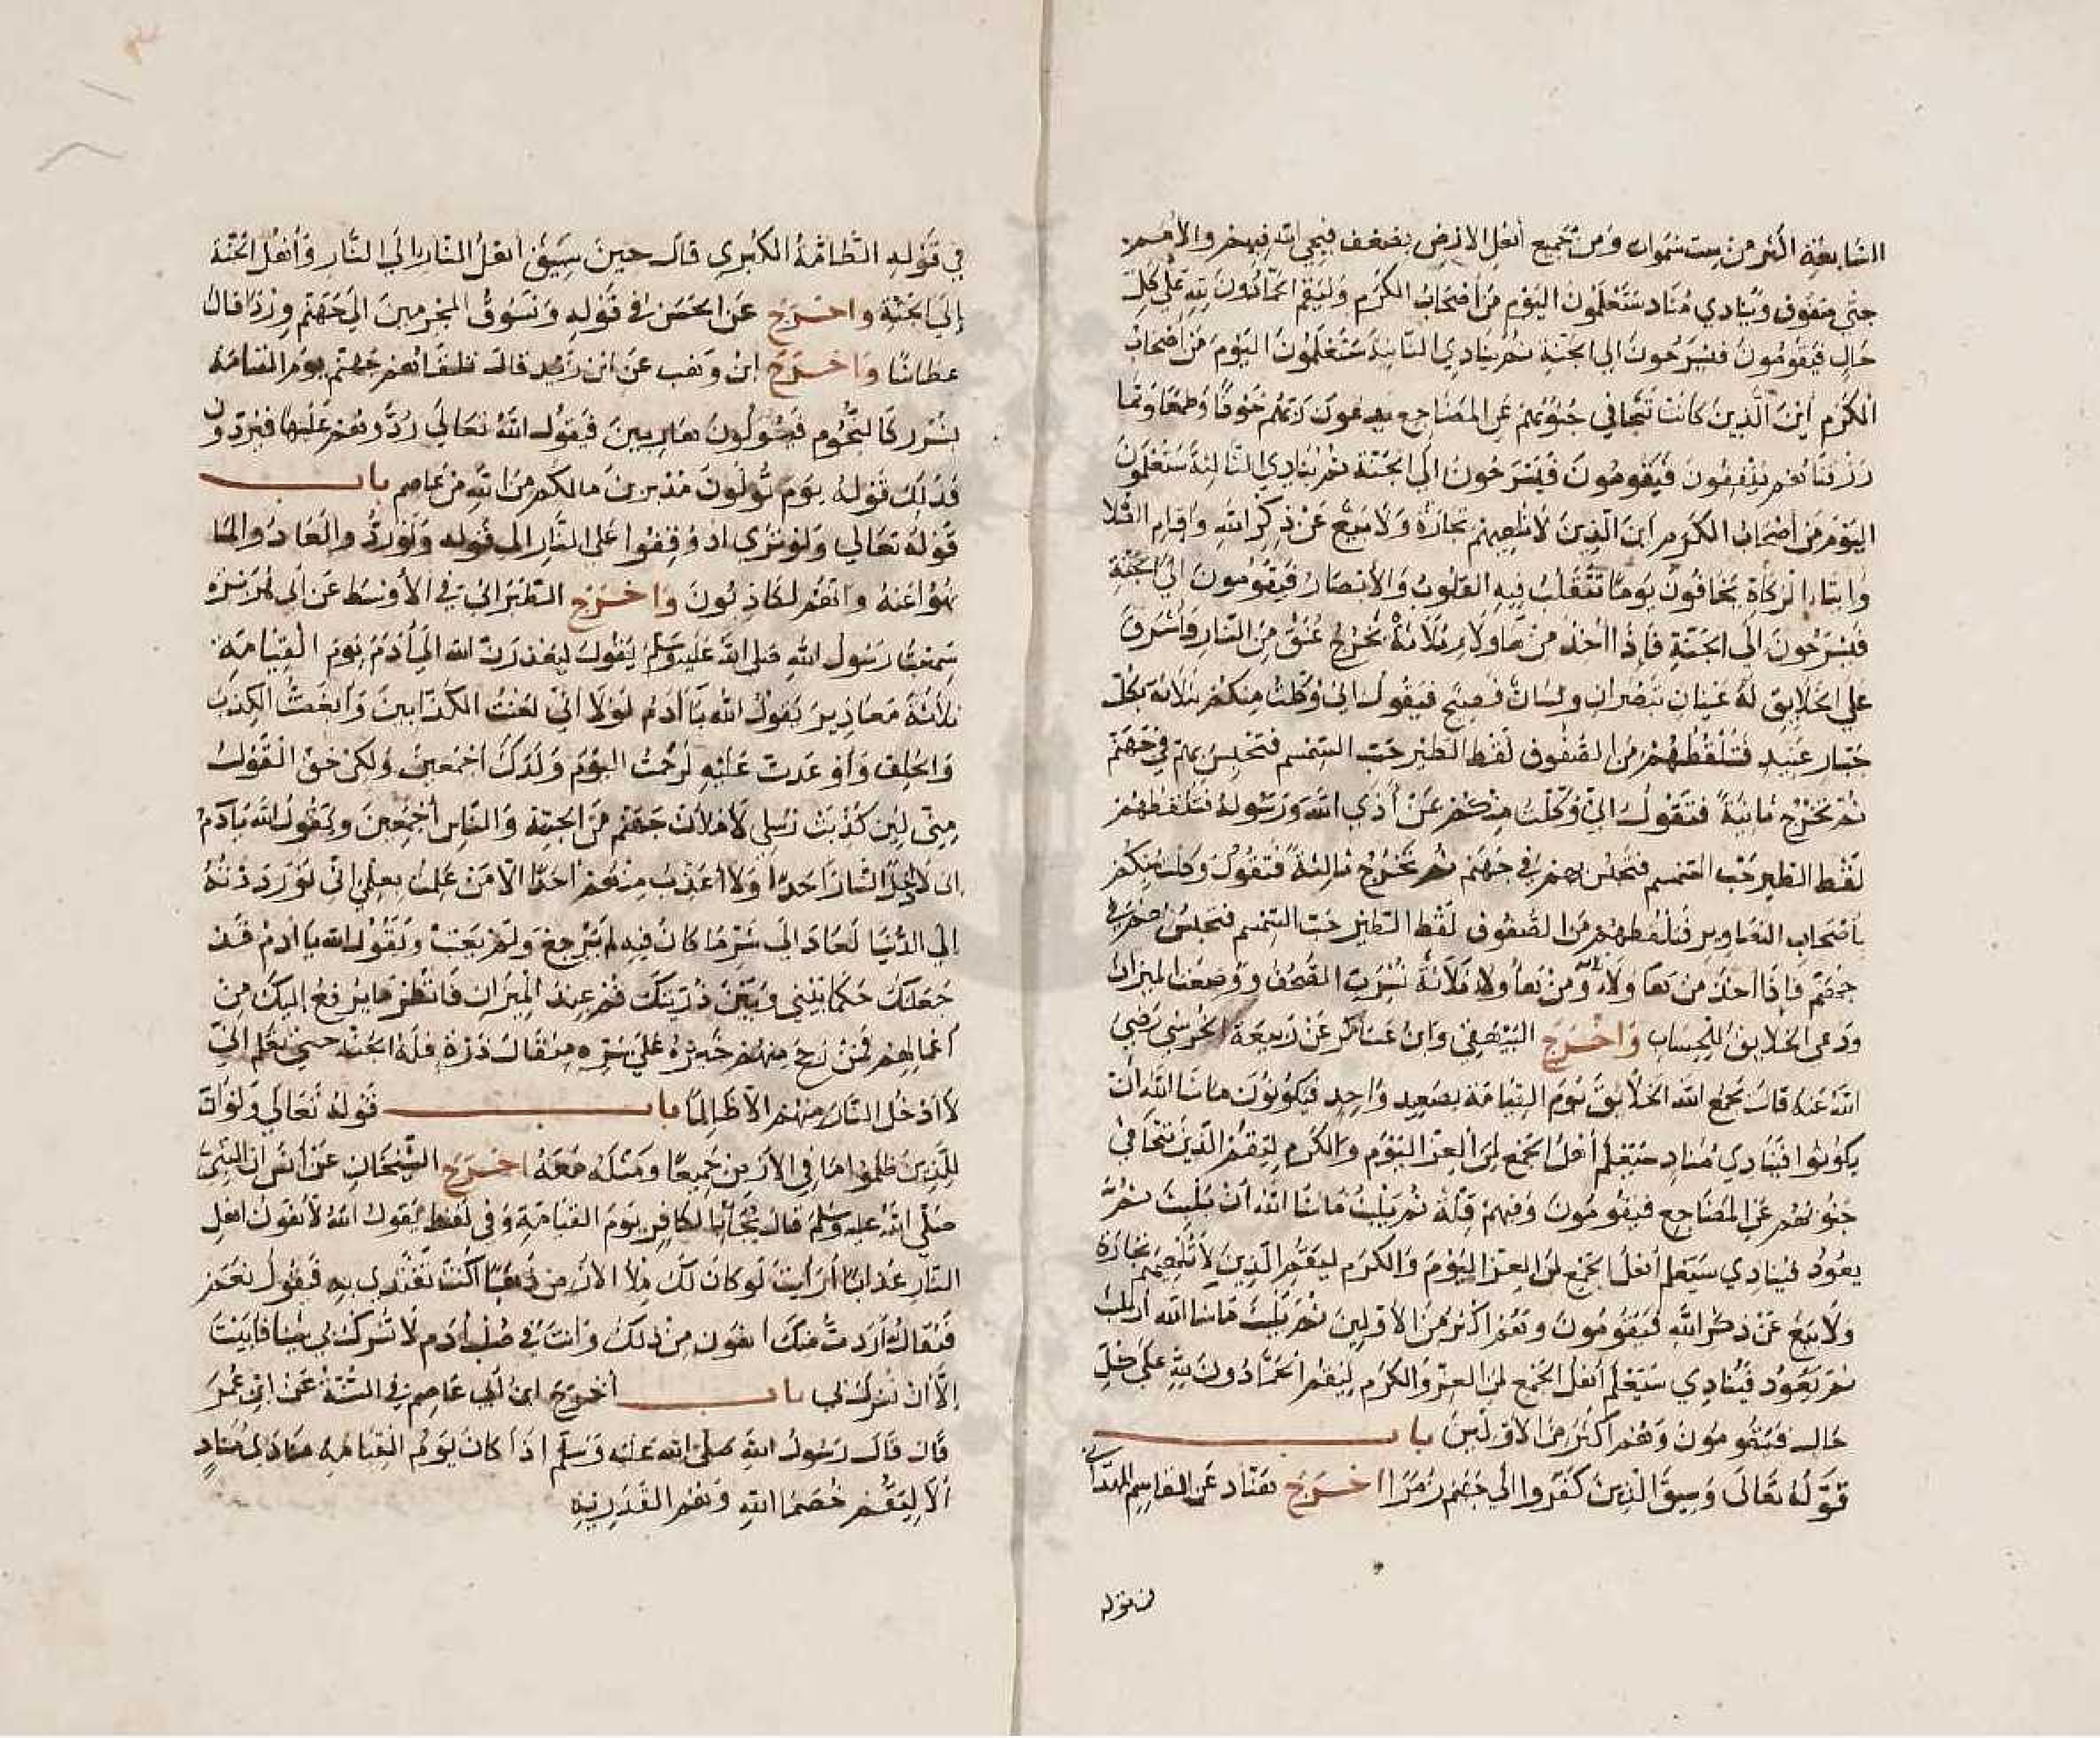 السابعة اكثر من ست سموات ومن جميع أهل الارض بضعف فيجي الله فيهم والأمم
جثي صفوف وينادي مناد ستعلمون اليوم من أصحاب الكرم وليقم الحمادون لله على كل
حال فيقومون فيسرحون الي الجنة ثم ينادي الثانية ستعلمون اليوم من أصحاب
الكرم أين الذين كانت تتجافي جنوبهم عن المضاجع يدعون ربهم خوفا وطمعا ومما
رزقناهم ينفقون فيقومون فيسرحون الى الجنة ثم ينادي الثالثة ستعلمون
اليوم من أصحاب الكرم اين الذين لا تلهيهم تجارة ولا بيع عن ذكر الله واقام الصلا
وايتاء الزكاة يخافون يوما تتقلب فيه القلوب والأبصار فيقومون الى الجنة
فيسرحون الى الجنة فاذا أخذ من هاولا ثلاثة تخرج عنق من النار فأشرف
على الخلايق له عينان تبصران ولسان فصيح فيقول اني وكلت منكم بثلاثة بكل
جبار عنيد فتلقطهم من الصفوف لقط الطير حب السمسم فتحبس بهم في جهنم
ثم تخرج ثانية فتقول اني وكلت منكم عن أذي الله ورسوله فتلقطهم
لقط الطير حب السمسم فتحبس بهم في جهنم ثم تخرج ثالثة فتقول وكلت منكم
بأصحاب التصاوير فتلقطهم من الصفوف لقط الطير حب السمسم فتحبس بهم في
جهنم فاذا أخذ من هاولا ومن هاولا ثلاثة نشرت الصحف ووضعت الميزان
ودعي الخلايق للحساب وأخرج البيهقي وابن عساكر عن ربيعة الجرشي رضي
الله عنه قال يجمع الله الخلايق يوم القيامة بصعيد واحد فيكونون ما شا الله ان
يكونوا فينادي مناد سيعلم أهل الجمع لمن العز اليوم والكرم ليقم الذين تتجافي
جنوبهم عن المضاجع فيقومون وفيهم قلة ثم يلبث ما شا الله ان يلبث ثم
يعود فينادي سيعلم أهل الجمع لمن العز اليوم والكرم ليقم الذين لا تلهيهم تجارة
ولا بيع عن ذكر الله فيقومون وهم اكثر من الأولين ثم يلبث ما شا الله ان يلبث
ثم يعود فينادي سيعلم أهل الجمع لمن العز والكرم ليقم الحمادون لله على كل
حال فيقومون وهم اكثر من الاولين باب
قوله تعالى وسيق الذين كفروا الي جهنم زمرا أخرج هناد عن القاسم الهمداني
في قوله
في قوله الطامة الكبري قال حين سيق أهل النار الي النار وأهل الجنة
إلى الجنة وأخرج عن الحسن في قوله ونسوق المجرمين الى جهنم وردا قال
عطاشا وأخرج ابن وهب عن ابن زيد قال تلفاهم جهنم يوم القيامة
بشرر كالنجوم فيولون هاربين فيقول الله تعالي ردوهم عليها فيردون
فذلك قوله يوم تولون مدبرين ما لكم من الله من عاصم باب
قوله تعالي ولو ترى اذ وقفوا على النار الى قوله ولو ردوا لعادوا لما
نهوا عنه وانهم لكاذبون وأخرج الطبراني في الأوسط عن أبي هريرة
سمعت رسول الله صلى الله عليه وسلم يقول ليعذرن الله الي أدم يوم القيامة
ثلاثة معاذير يقول الله يا أدم لولا اني لعنت الكذابين وأبغضت الكذب
والحلف وأوعدت عليه لرحمت اليوم ولدك أجمعين ولكن حق القول
مني لين كذبت رسلي لأملأن جهنم من الجنة والناس أجمعين ويقول الله يا آدم
اني لا أدخل النار أحدا ولا أعذب منهم احدا الا من علمت بعلمي اني لو رددته
إلي الدنيا لعاد الى شر ما كان فيه لم يرجع ولم يعتب ويقول الله يا أدم قد
جعلتك حكما بيني وبين ذريتك قم عند الميزان فانظر ما يرفع إليك من
أعمالهم فمن رجح منهم خيره على شره مثقال ذرة فله الجنة حتى تعلم اني
لا أدخل النار منهم الا ظالما باب قوله تعالى ولو أن
للذين ظلموا ما في الارض جميعا ومثله معه أخرج الشيخان عن أنس ان النبي
صلى الله عليه وسلم قال يجا بالكافر يوم القيامة وفي لفظ يقول الله لأهون أهل
النار عذابا أرأيت لو كان لك ملأ الأرض ذهبا أكنت تفتدي به فيقول نعم
فيقال أردت منك اهون من ذلك وأنت في صلب أدم لا تشرك بي شيا فأبيت
إلا أن تشرك بي باب أخرج ابن أبي عاصم في السنة عن ابن عمر
قال قال رسول الله صلى الله عليه وسلم اذا كان يوم القيامة نادى مناد
ألا ليقم خصما الله وهم القدرية